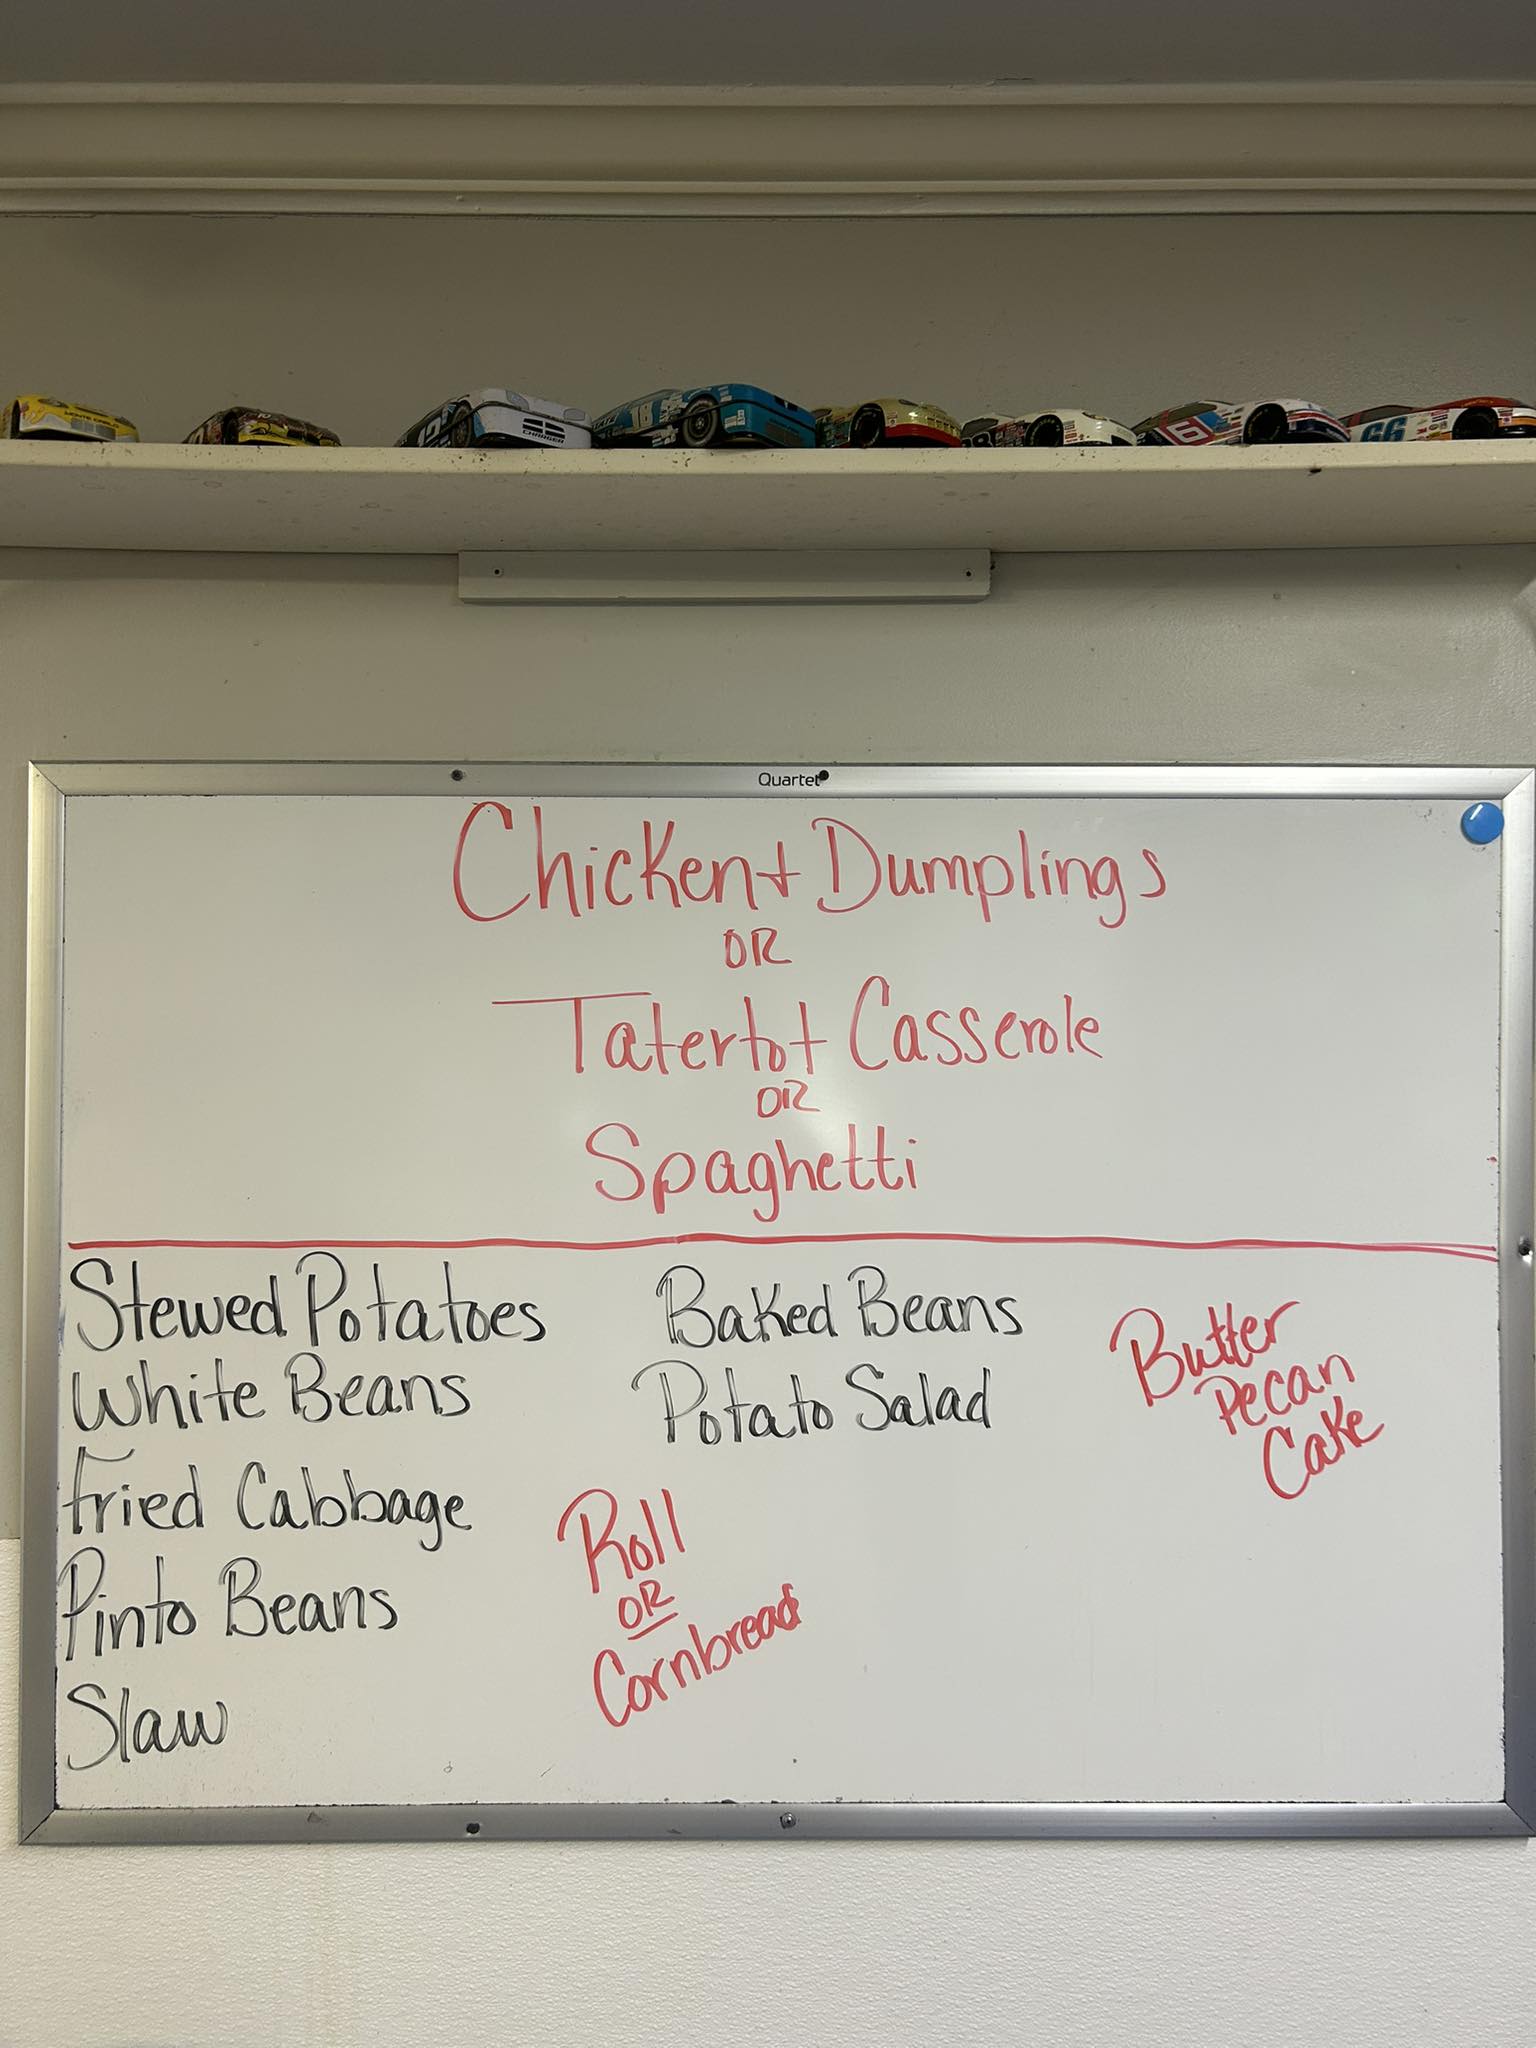 18
CHARGER
66
Quartet
Chicken + Dumplings
OR
Tatertot Casserole
OR
Spaghetti
Stewed Potatoes
White Beans
Fried Cabbage
Pinto Beans
Slaw
Baked Beans
Potato Salad
Roll
OR
Cornbread
Butter
Pecan
Cake